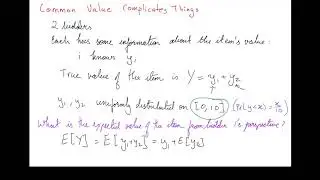 Common Value Complicates Things
2 bidders
Each has some information about the item's value:
i knows yi
True value of the item is Y = y1 + y2
y1, y2 uniformly distributed on [0,10] (Pr(y<x) = x/10)
What is the expected value of the item from bidder 1's perspective?
E[Y] = E[y1+y2] = y1 + E[y2]